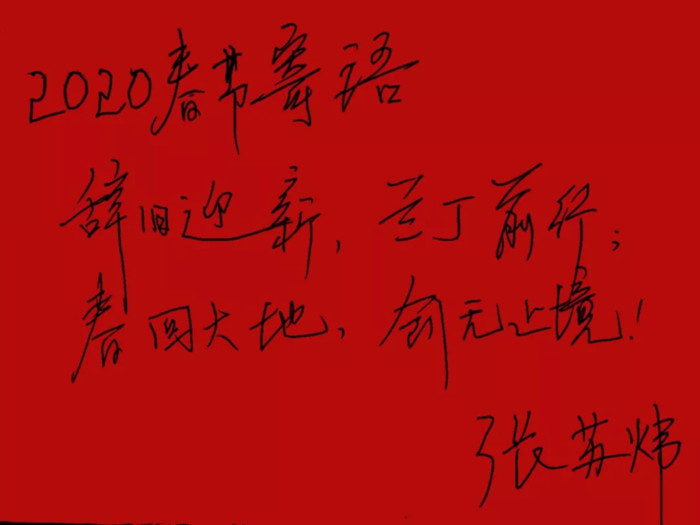 2020春节寄语
辞旧迎新,兰丁前行;
春回大地,创无止境!
张苏炜